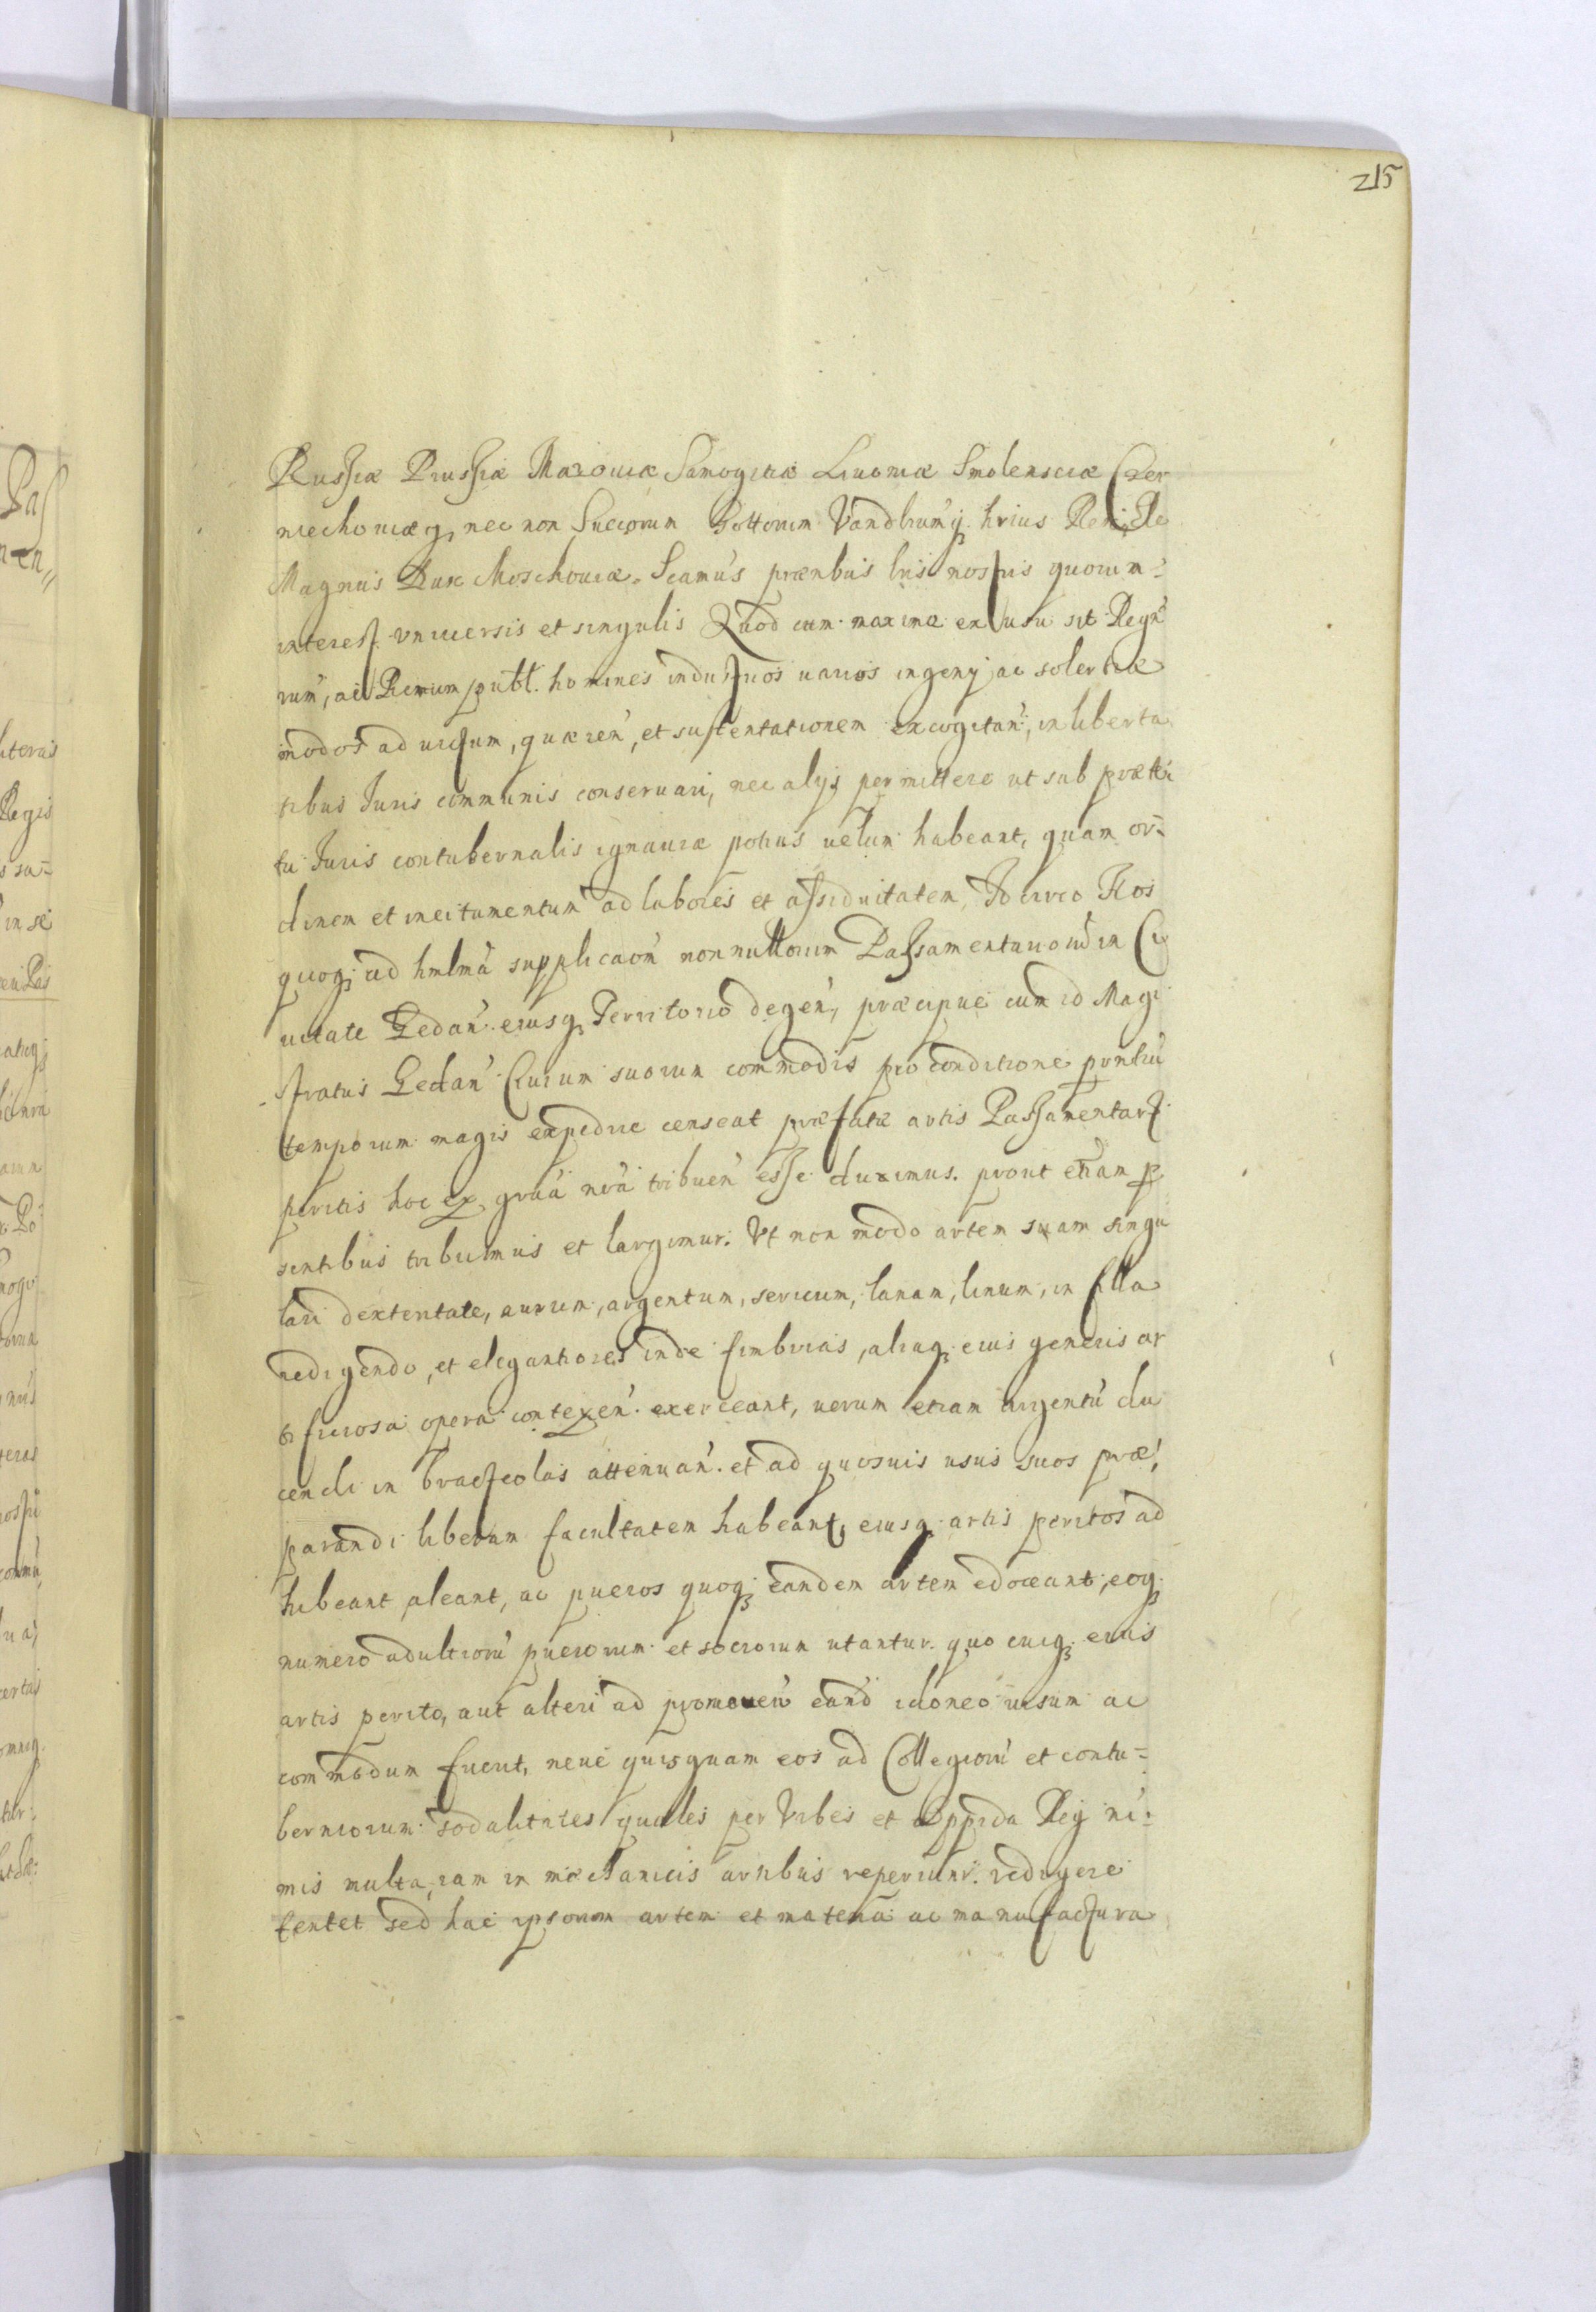 215
Russiæ Prussiæ Mazouiæ Samogitiæ Liuoniæ Smolensciæ Czer
niechouiæq, nec non Suecorum Gottorum Vandlrumq. hrius Rex, Ele
Magnus Dux Moschouiæ. Scamus præntbus lris nostris quorum
interest vniuersis et singulis Quod cum maxime ex usu sit Regn
rum, ac Rerum publ. homines industrios uarios ingenij ac solertiæ
modos ad uictum, quæren, et sustentationem excogitan, in liberta
tibus Juris communis conseruari, nec alijs permittere ut sub prætex
tu Juris contubernalis ignauiæ potius uelum habeant, quam or-
dinem et incitamentum ad labores et assiduitatem, Idcirco Nos
quoq ad hmlmã supplicaõn nonnullorum Passamentariorũ in Ci
uitate Gedan. eiusq Territorio degen, præcipue cum id Magi
stratus Gedan Ciuium suorum commodis pro conditione pñntiũ
temporum magis expedire censeat præfatæ artis Passamentariæ
peritis hoc ex grãa nrã tribuen esse duximus. prout etiam p
sentibus tribuimus et largimur. Vt non modo artem suam singu
lari dexteritate, aurum, argentum, sericum, lanam, linum, in filla
redigendo, et elegantiores inde fimbrias, aliaq eius generis ar
tificiosa opera contexen. exerceant, uerum etiam argentũ du
cendi in bracteolas attenuan. et ad quosuis usus suos præ
parandi liberam facultatem habeant, eiusq artis peritos ad
hibeant, aleant, ac pueros quoq eandem artem edoceant, eoq
numero adultiorũ puerorum et sociorum utantur. quo cuiq eius
artis perito, aut alteri ad promouen eand idoneo uisum ac
commodum fuerit, neue quisquam eos ad Collegiorũ et contu-
berniorum sodalitates quales per Vrbes et Oppida Reg ni-
mis multa, iam in mechanicis artibus reperiunr. redigere
tentet sed hac ipsorum artem et materia ac manufactura